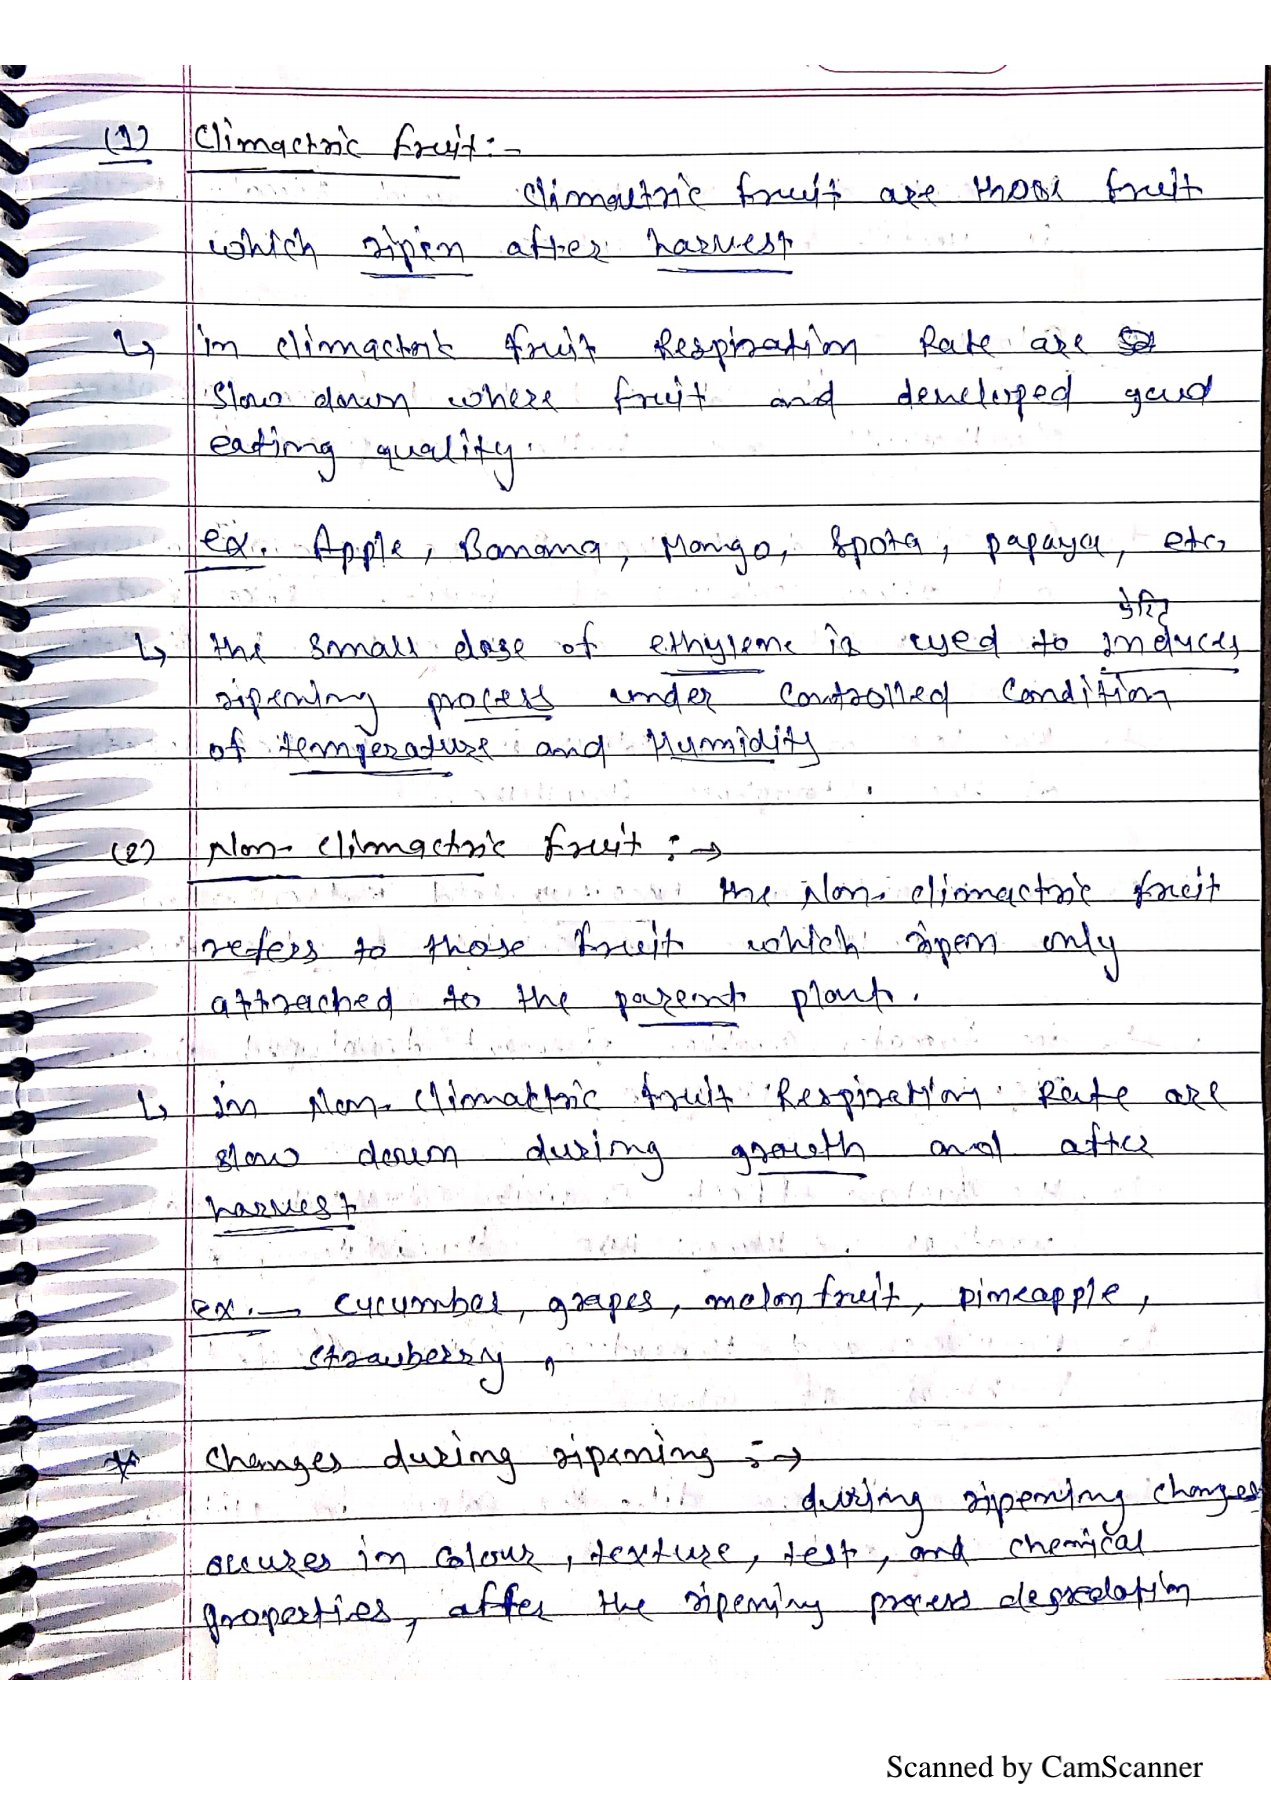 (1) Climactric fruit:-
Climactric fruit are those fruit
which ripen after harvest
↳ in climactric fruit Respiration Rate are
slow down where fruit and developed good
eating quality.
ex. Apple, Banana, Mango, Spota, papaya, etc,
प्रेरित
↳ the small dose of ethylene is used to induces
ripening process under controlled condition
of temperature and Humidity
(2) Non-climactric fruit :→
the Non-climactric fruit
refers to those fruit which ripen only
attached to the parent plant.
↳ in Non-climactric fruit Respiration Rate are
slow down during growth and after
harvest
ex.→ cucumber, grapes, melon fruit, pineapple,
strawberry,
* Changes during ripening :→
during ripening changes
occures in colour, texture, test, and chemical
properties, after the ripening process degradation
Scanned by CamScanner